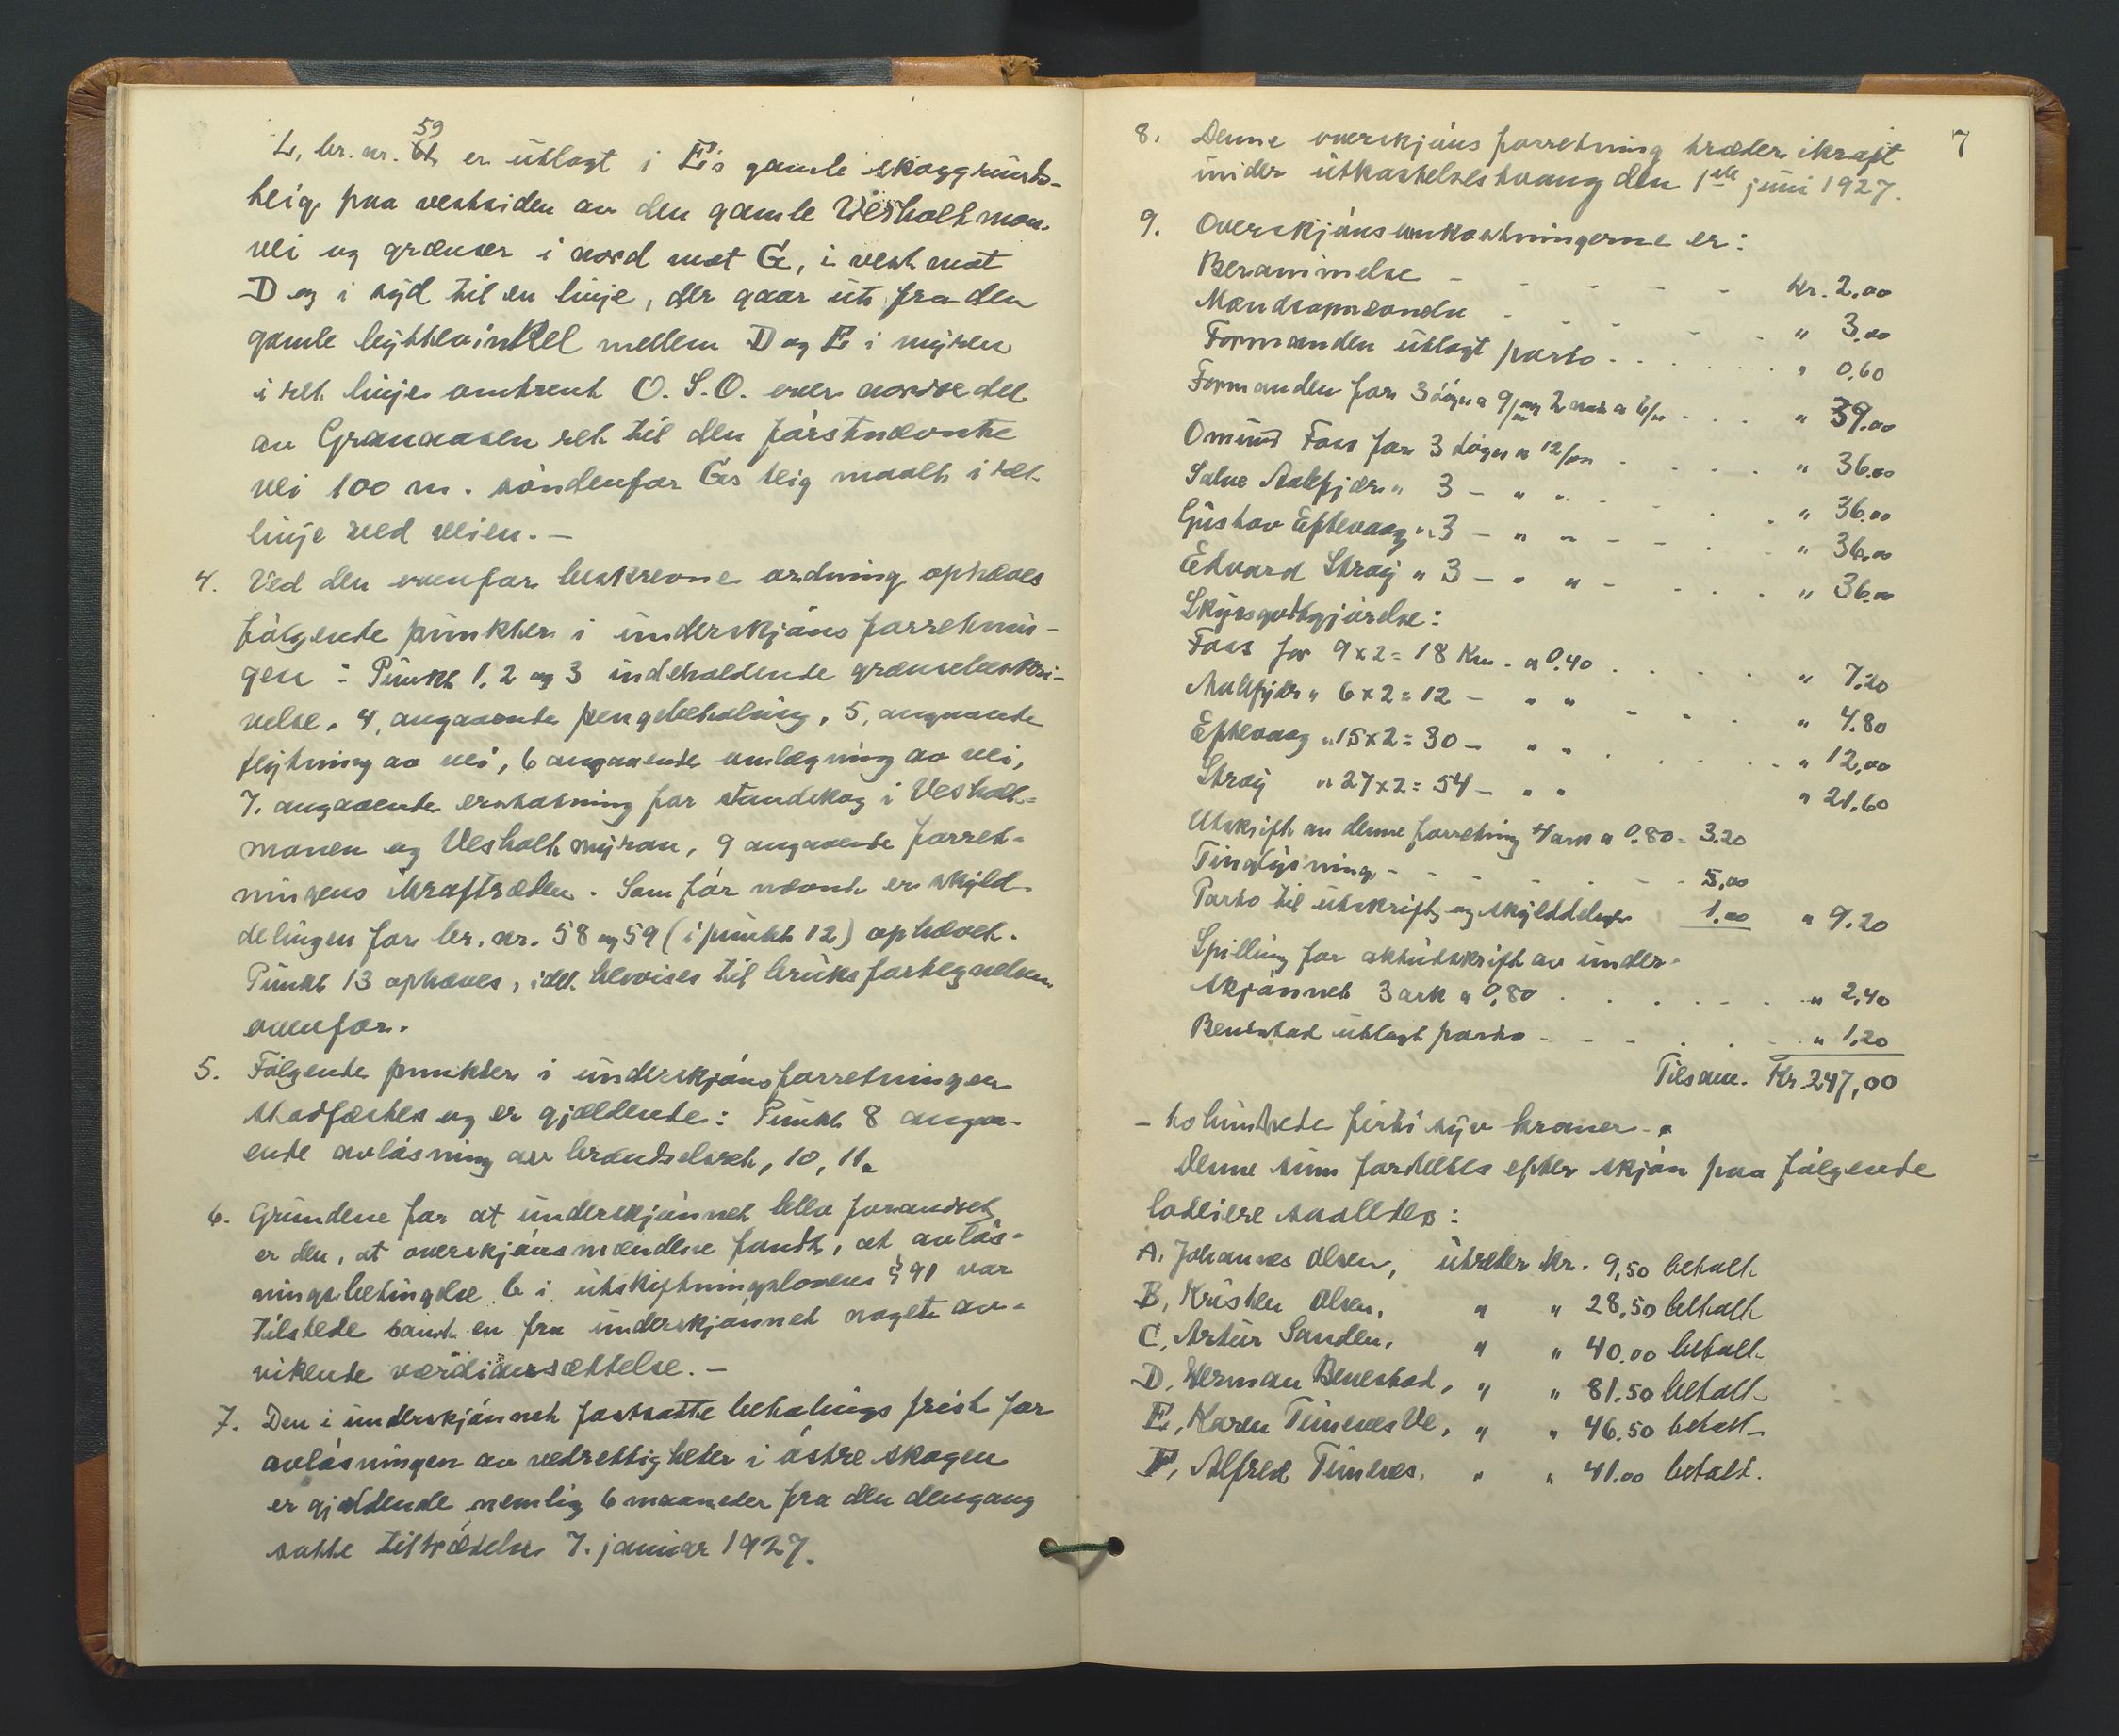 L, br. nr. 59 er utlagt i E's gamle skoggrunds-
teig paa vestsiden av den gamle Vesholtmon-
vei og grænser i nord mot G, i vest mot
D og i syd til en linje, der gaar ut fra den
gamle byttevinkel mellem D og E i myren
i ret linje omtrent O. S. O. over nordre del
av Granaasen ret til den förstnævnte
vei 100 m. söndenfor G's teig maalt i ret
linje ved veien. —
4. Ved den ovenfor beskrevne ordning ophæves
fölgende punkter i underskjöns forretnin-
gen: Punkt 1, 2 og 3 indeholdende grænsebeskri-
velse, 4, angaaende pengebetaling, 5, angaaende
flytning av vei, 6 angaaende omlægning av vei,
7. angaaende erstatning for standskog i Vesholt-
monen og Vesholtmyran, 9 angaaende forret-
ningens ikrafttræden. Som för nævnt er skyld-
delingen for br. nr. 58 og 59 (i punkt 12) ophævet.
Punkt 13 ophæves, idet henvises til bruksfortegnelsen
ovenfor.
5. Fölgende punkter i underskjönsforretningen
stadfæstes og er gjældende: Punkt 8 angaa-
ende avlösning av brændselsret, 10, 11.
6. Grundene for at underskjönnet blev forandret
er den, at overskjönsmændene fandt, at avlös-
ningsbetingelse b i utskiftningslovens § 91 var
tilstede samt en fra underskjönnet noget av-
vikende værdiansættelse. —
7. Den i underskjönnet fastsatte betalings frist for
avlösningen av vedrettigheter i östre skogen
er gjældende nemlig 6 maaneder fra den dengang
satte tiltrædelse 7. januar 1927.
7
8. Denne overskjöns forretning træder ikraft
under utkastelsestvang den 1ste juni 1927.
9. Overskjönsomkostningerne er:
Berammelse - - - - - Kr. 2,00
Mandsopnævnelse - - - - - " 3,00
Formanden utlagt porto . . . . . " 0,60
Formanden for 3 dögn a 9/00 og 2 a 6/00 . . . " 39.00
Omund Foss for 3 dögn a 12/00 . . . . " 36.00
Salve Aalefjær " 3 - " " - . . " 36.00
Gustav Eftevaag " 3 - " " - - . . " 36.00
Edvard Stray " 3 - " " - . . . " 36.00
Skyssgodtgjörelse:
Foss for 9 x 2 = 18 Km. a 0.40 . . . . " 7.20
Aalefjær " 6 x 2 = 12 - " " - . . " 4.80
Eftevaag " 15 x 2 = 30 - " " . . . . " 12,00
Stray " 27 x 2 = 54 - " " " 21.60
Utskrift av denne forretning 4 ark a 0.80 = 3.20
Tinglysning - - - - - 5,00
Porto til utskrift og skylddeling 1.00 " 9.20
Spilling for aktutskrift av under-
skjönnet 3 ark a 0,80 . . . . . " 2,40
Benestad utlagt porto - - - . . " 1,20
Tilsam. Kr. 247,00
- tohundrede förti syv kroner -.
Denne sum fordeles efter skjön paa fölgende
lodeiere saaledes:
A. Johannes Olsen, utreder kr. 9,50 betalt
B, Kristen Olsen, " " 28,50 betalt
C, Artur Sanden, " " 40.00 betalt
D, Herman Benestad, " " 81.50 betalt
E, Karen Timenes Ve, " " 46.50 betalt
F, Alfred Timenes, " " 41.00 betalt.